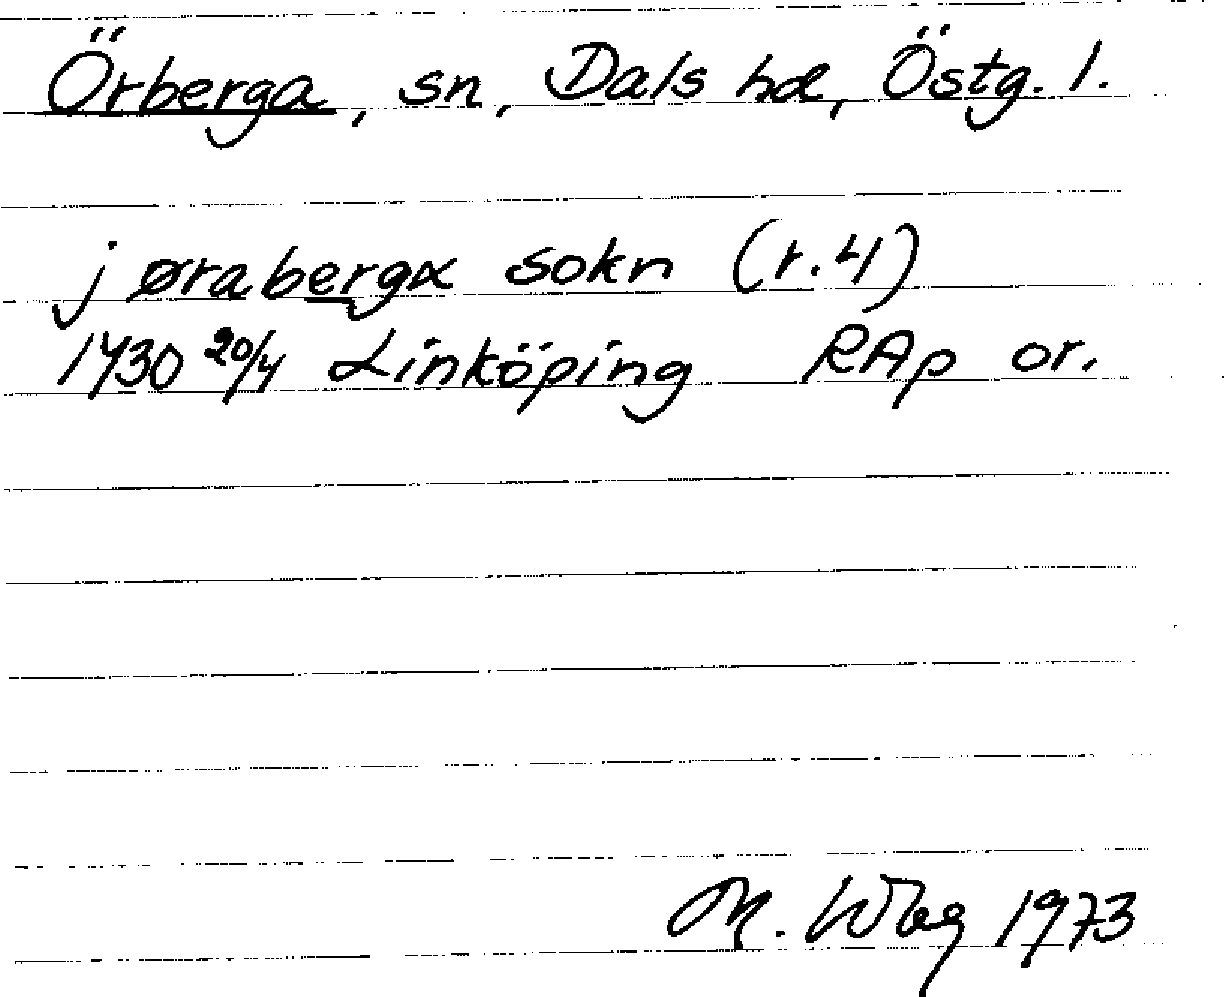 Örberga, sn, Dals hd, Östg. l.
j ørabergæ sokn (r.4)
1430 20/4 Linköping RAp or.
M. Wbg 1973